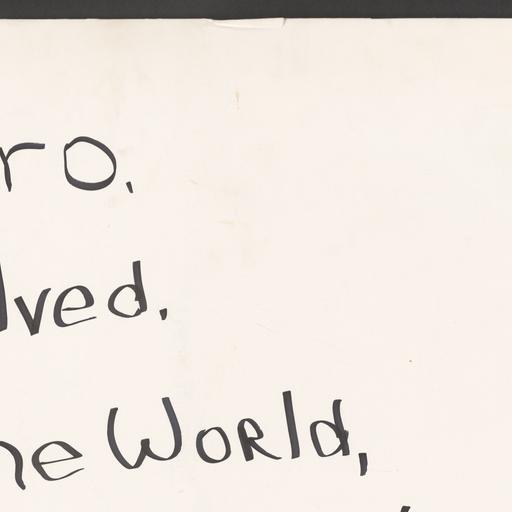 ro.
lved.
he World,